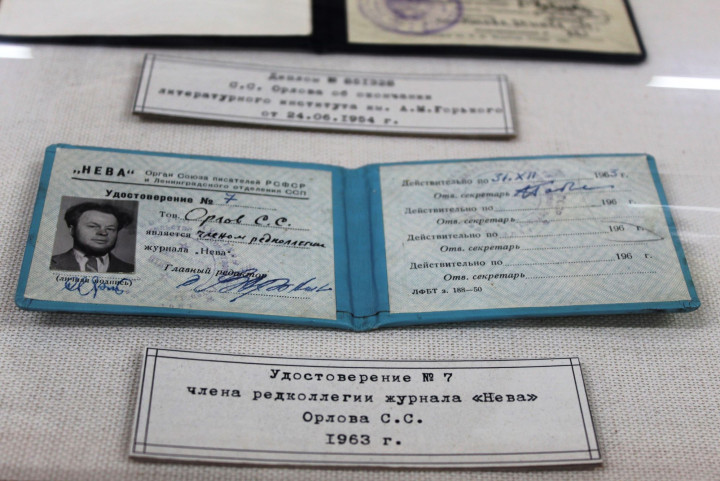 Диплом №
С.С. Орлова об окончании
литературного института им. А.М.Горького
от 24.06.1954 г.
„НЕВА“ Орган Союза писателей РСФСР
и Ленинградского отделения ССП
Удостоверение № 7
Тов. Орлов С.С.
является членом редколлегии
журнала „Нева“
Главный редактор
(личная подпись)
Действительно по 31.XII 1963 г.
Отв. секретарь
Действительно по 196 г.
Отв. секретарь
Действительно по 196 г.
Отв. секретарь
Действительно по 196 г.
Отв. секретарь
ЛФБТ з. 188—50
Удостоверение № 7
члена редколлегии журнала «Нева»
Орлова С.С.
1963 г.